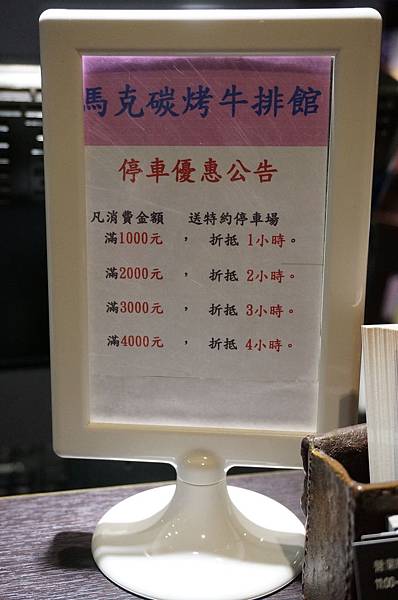 馬克碳烤牛排館
停車優惠公告
凡消費金額 送特約停車場
滿1000元 ， 折抵 1小時。
滿2000元 ， 折抵 2小時。
滿3000元 ， 折抵 3小時。
滿4000元 ， 折抵 4小時。
11:00